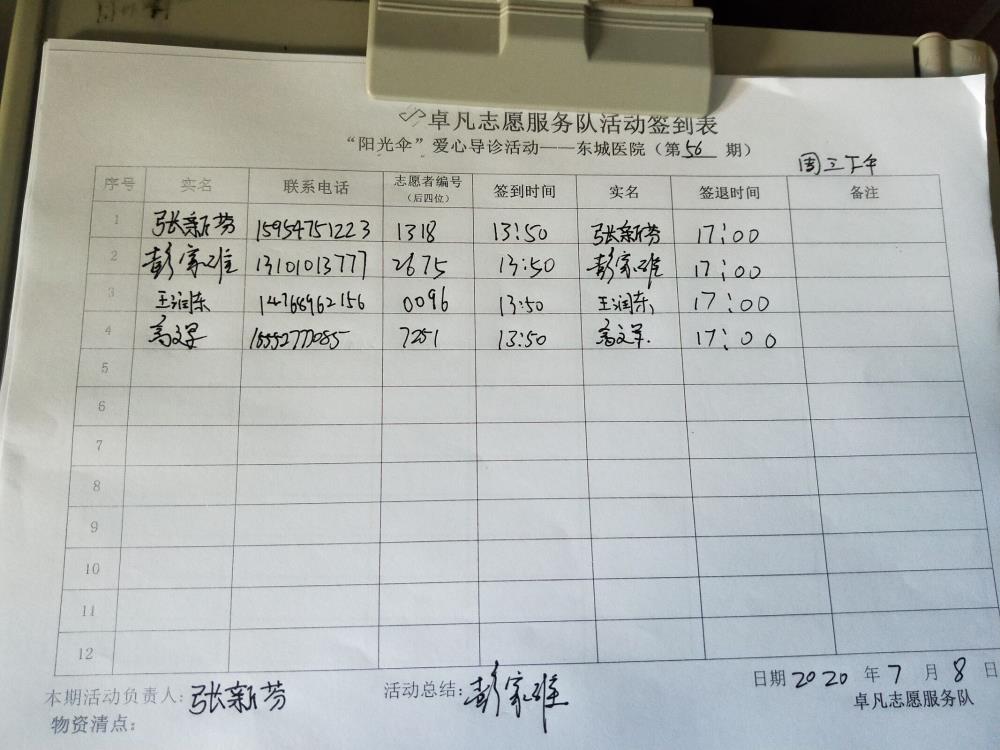 卓凡志愿服务队活动签到表
“阳光伞”爱心导诊活动——东城医院（第 56 期）
周三下午
序号 实名 联系电话 志愿者编号（后四位） 签到时间 实名 签退时间 备注
1 张新芳 15954751223 1318 13:50 张新芳 17:00
2 彭家雄 13101013777 2675 13:50 彭家雄 17:00
3 王润东 14768962156 0096 13:50 王润东 17:00
4 高文 15552777085 7251 13:50 高文 17:00
5
6
7
8
9
10
11
12
本期活动负责人：张新芳 活动总结：彭家雄 日期 2020 年 7 月 8 日
物资清点： 卓凡志愿服务队